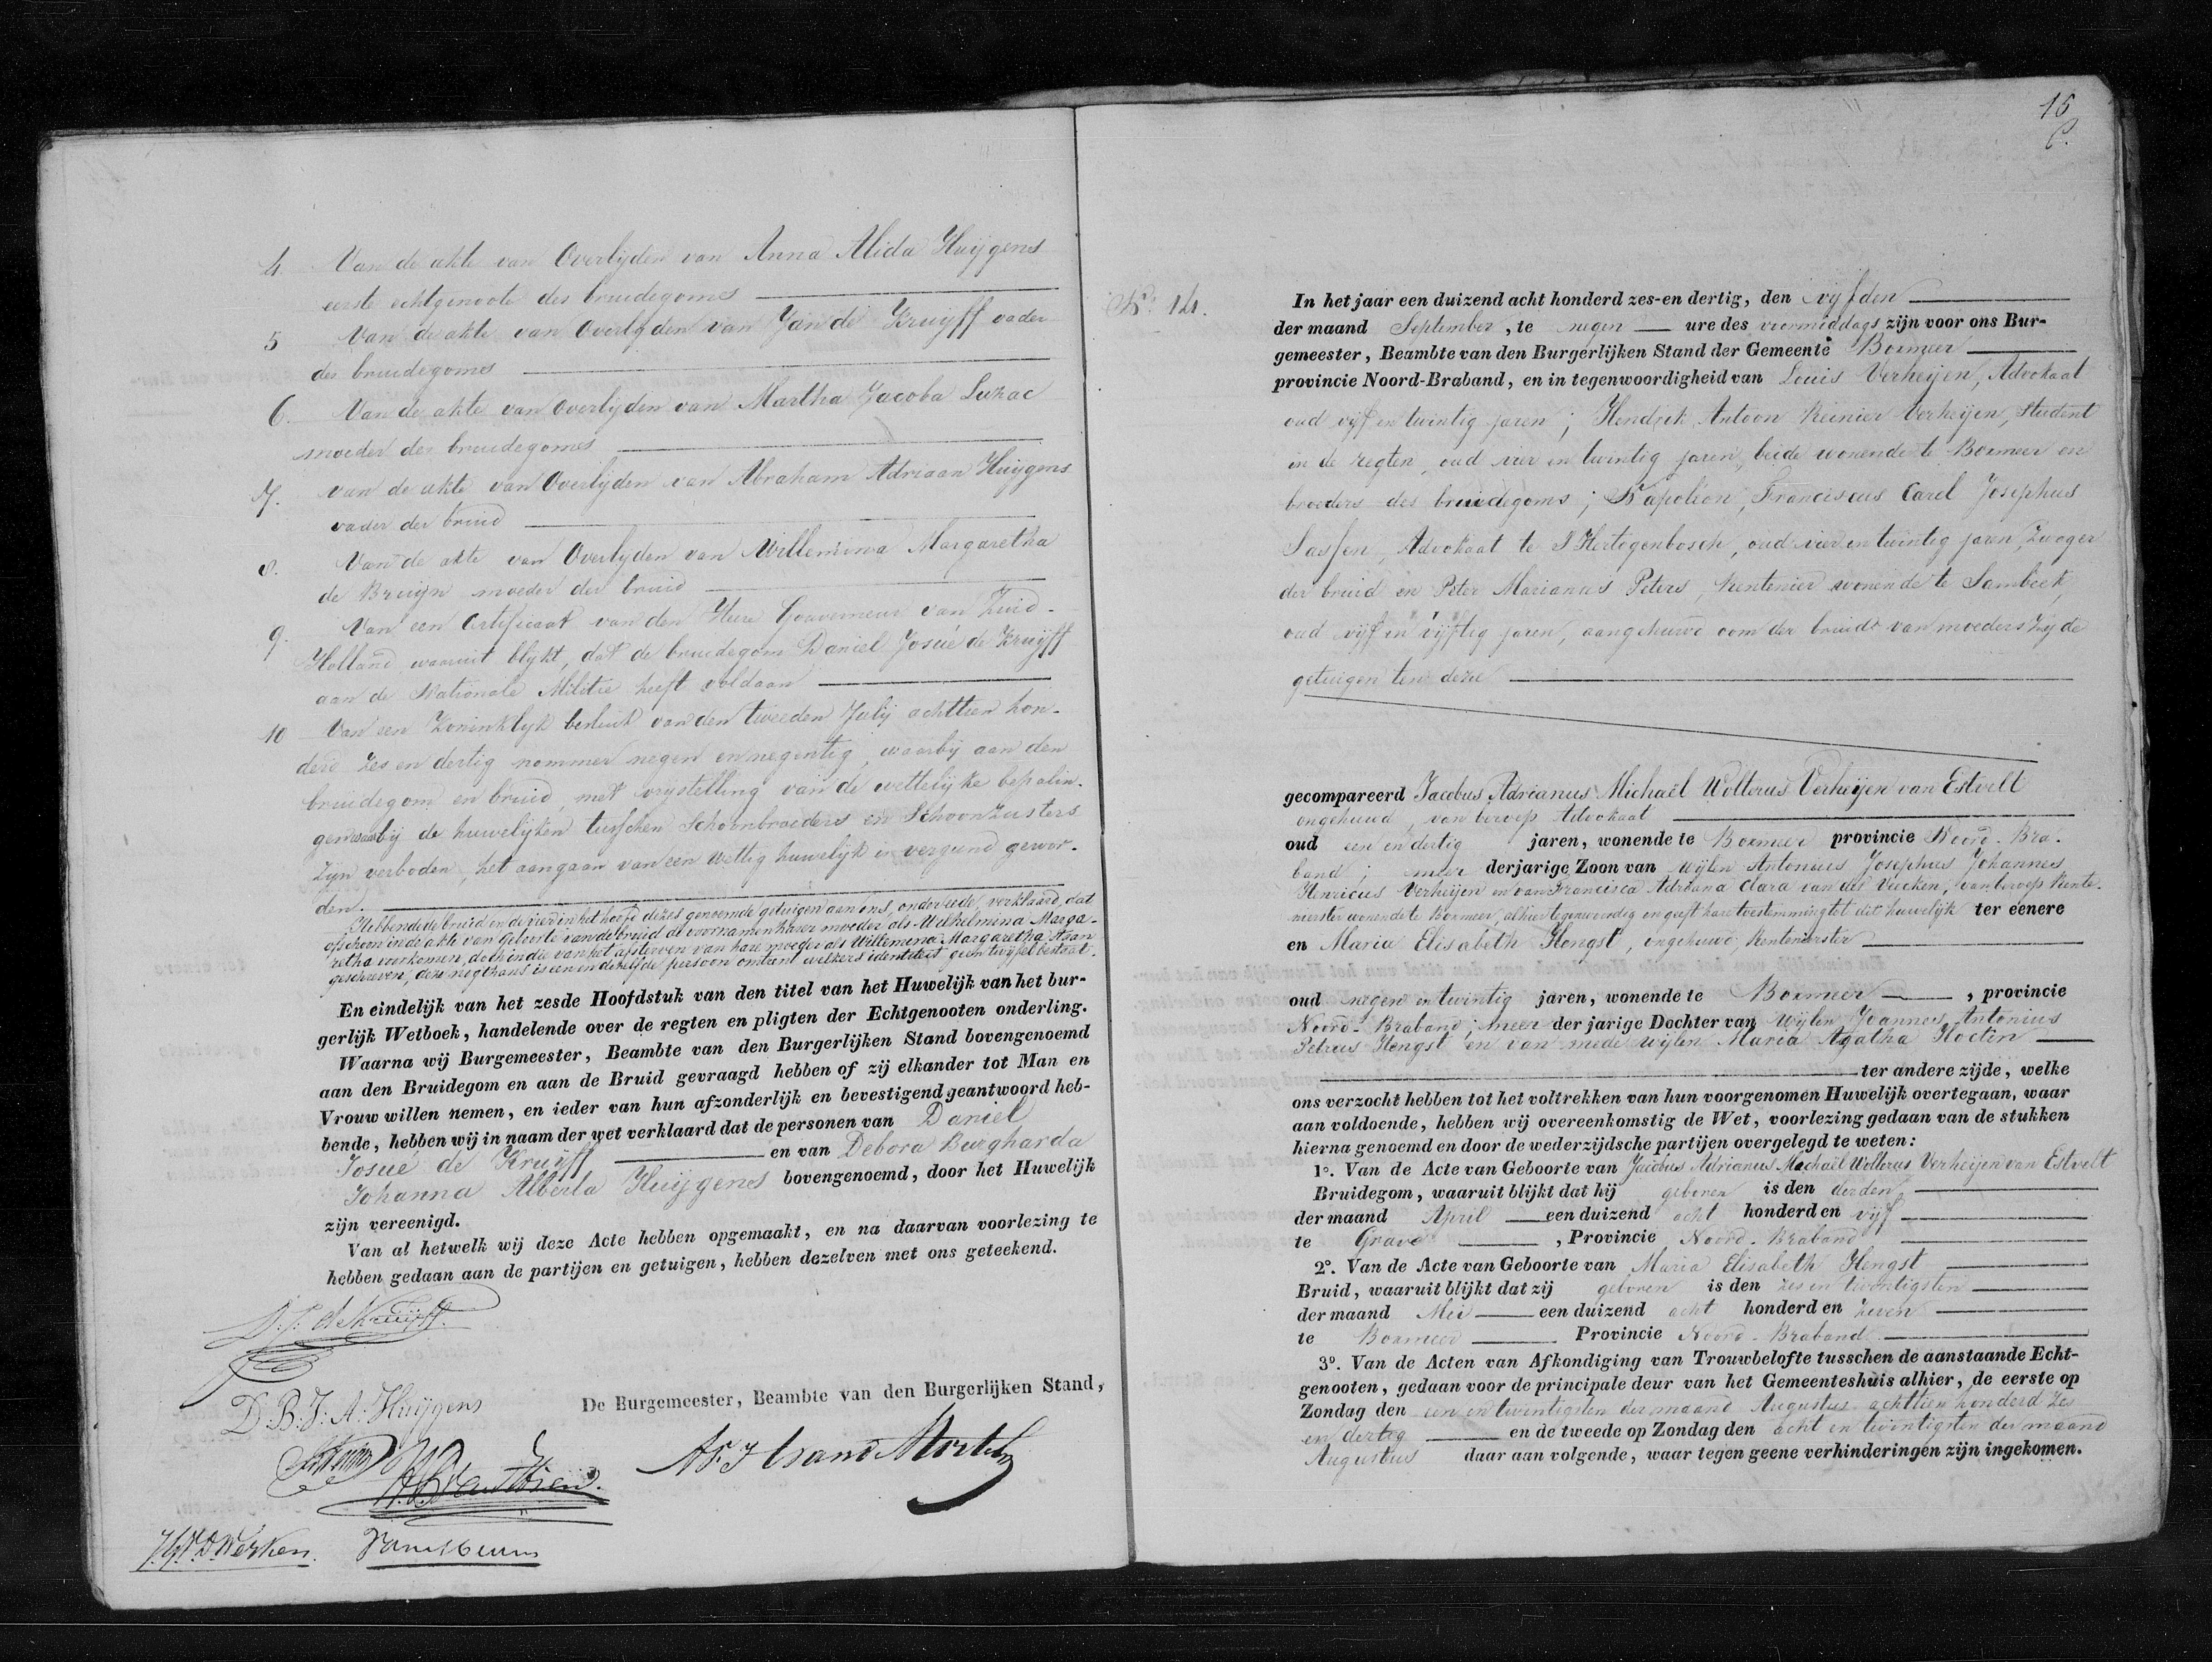 4 Van de akte van Overlijden van Anna Alida Huijgens
eerste echtgenoote des bruidegoms
5 Van de akte van Overlijden van Jan de Kruijff vader
des bruidegoms
6. Van de akte van Overlijden van Martha Jacoba Luzac
moeder des bruidegoms
7. van de akte van Overlijden van Abraham Adriaan Huijgens
vader der bruid
8. Van de akte van Overlijden van Willemina Margaretha
de Bruijn moeder der bruid
9. Van een Certificaat van den Heere Gouverneur van Zuid-
Holland waaruit blijkt, dat de bruidegom Daniel Josué de Kruijff
aan de Nationale Militie heeft voldaan
10 Van een Koninklijk besluit van den tweeden Julij achttien hon-
derd zes en dertig nommer negen en negentig, waarbij aan den
bruidegom en bruid, met vrijstelling van de wettelijke bepalin-
gen waarbij de huwelijken tusschen Schoonbroeders en Schoonzusters
zijn verboden, het aangaan van een wettig huwelijk is vergund gewor-
den.
Hebbende de bruid en de vier in het hoofd dezes genoemde getuigen aan ons, onder eede, verklaard, dat
ofschoon in de akte van Geboorte van de bruid de voornamen harer moeder als Wilhelmina Marga-
retha voorkomen, doch in die van het afsterven van hare moeder als Willemina Margaretha staan
geschreven, deze nogthans is een en dezelfde persoon omtrent welkers identiteit geen twijfel bestaat.
En eindelijk van het zesde Hoofdstuk van den titel van het Huwelijk van het bur-
gerlijk Wetboek, handelende over de regten en pligten der Echtgenooten onderling.
Waarna wij Burgemeester, Beambte van den Burgerlijken Stand bovengenoemd
aan den Bruidegom en aan de Bruid gevraagd hebben of zij elkander tot Man en
Vrouw willen nemen, en ieder van hun afzonderlijk en bevestigend geantwoord heb-
bende, hebben wij in naam der wet verklaard dat de personen van Daniel
Josué de Kruijff en van Debora Burgharda
Johanna Alberta Huijgens bovengenoemd, door het Huwelijk
zijn vereenigd.
Van al hetwelk wij deze Acte hebben opgemaakt, en na daarvan voorlezing te
hebben gedaan aan de partijen en getuigen, hebben dezelven met ons geteekend.
D. J. de Kruijff.
D: B: J: A: Huijgens
De Burgemeester, Beambte van den Burgerlijken Stand,
15
No. 14.
In het jaar een duizend acht honderd zes-en dertig, den vijfden
der maand September, te negen ure des voormiddags zijn voor ons Bur-
gemeester, Beambte van den Burgerlijken Stand der Gemeente Boxmeer
provincie Noord-Braband, en in tegenwoordigheid van Louis Verheijen, Advokaat
oud vijf en twintig jaren; Hendrik Antoon Reinier Verheijen, Student
in de regten, oud vier en twintig jaren, beide wonende te Boxmeer en
broeders des bruidegoms; Napoléon, Franciscus Carel Josephus
Sassen, Advokaat te S'Hertogenbosch, oud vier en twintig jaren, Zwager
der bruid en Peter Marianus Peters, Rentenier wonende te Sambeek,
oud vijf en vijftig jaren, aangehuwd oom der bruid van moeders zijde
getuigen ten deze
gecompareerd Jacobus Adrianus Michaël Wolterus Verheijen van Estvelt
ongehuwd, van beroep Advokaat
oud een en dertig jaren, wonende te Boxmeer provincie Noord-Bra-
band; meer derjarige Zoon van wijlen Antonius Josephus Johannes
Henricus Verheijen en van Francisca Adriana Clara van der Vucken, van beroep Rente-
nierster wonende te Boxmeer, alhier tegenwoordig en geeft hare toestemming tot dit huwelijk ter eenere
en Maria Elisabeth Hengst, ongehuwd, Rentenierster
oud negen en twintig jaren, wonende te Boxmeer, provincie
Noord-Braband; meer der jarige Dochter van Wijlen Joannes Antonius
Petrus Hengst en van mede wijlen Maria Agatha Hoctin
ter andere zijde, welke
ons verzocht hebben tot het voltrekken van hun voorgenomen Huwelijk overtegaan, waar
aan voldoende, hebben wij overeenkomstig de Wet, voorlezing gedaan van de stukken
hierna genoemd en door de wederzijdsche partijen overgelegd te weten:
1o. Van de Acte van Geboorte van Jacobus Adrianus Michaël Wolterus Verheijen van Estvelt
Bruidegom, waaruit blijkt dat hij geboren is den derden
der maand April een duizend acht honderd en vijf
te Grave, Provincie Noord-Braband
2o. Van de Acte van Geboorte van Maria Elisabeth Hengst
Bruid, waaruit blijkt dat zij geboren is den zes en twintigsten
der maand Mei een duizend acht honderd en zeven
te Boxmeer Provincie Noord-Braband
3o. Van de Acten van Afkondiging van Trouwbelofte tusschen de aanstaande Echt-
genooten, gedaan voor de principale deur van het Gemeenteshuis alhier, de eerste op
Zondag den een en twintigsten der maand Augustus achttien honderd zes
en dertig en de tweede op Zondag den acht en twintigsten der maand
Augustus daar aan volgende, waar tegen geene verhinderingen zijn ingekomen.